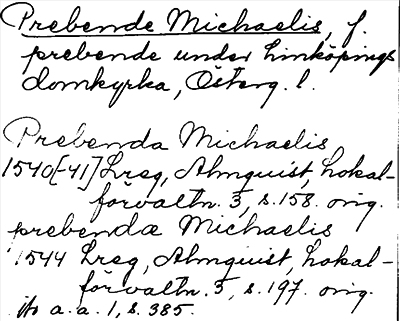 Prebende Michaelis, f.
prebende under Linköpings
domkyrka, Österg. l.
Prebenda Michaelis
1540[-41] Lreg, Almquist, Lokal-
förvaltn. 3, s. 158. orig.
prebenda Michaelis
1544 Lreg, Almquist, Lokal-
förvaltn. 3, s. 197. orig.
jfr a. a. 1, s. 385.